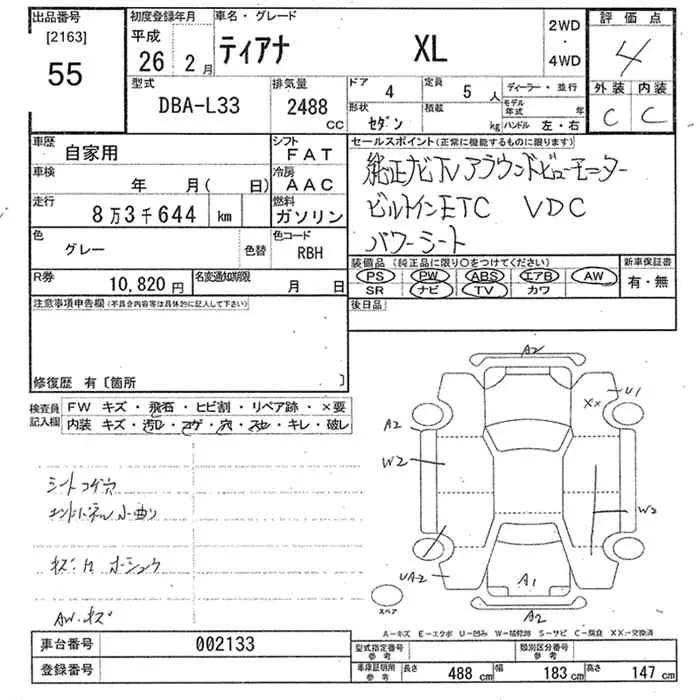 出品番号
[2163]
55
初度登録年月
平成
26年 2月
車名・グレード
ティアナ XL
2WD
・
4WD
評価点
4
外装 内装
C C
型式
DBA-L33
排気量
2488
CC
ドア
4
定員
5人
形状
セダン
積載
kg
ディーラー・並行
モデル年式 年
ハンドル 左・右
車歴
自家用
シフト
FAT
車検
年 月( 日)
冷房
AAC
走行
8万3千644 km
燃料
ガソリン
色
グレー
色替
色コード
RBH
R券
10,820円
名変通知期限
月 日
セールスポイント(正常に機能するものに限ります)
純正ナビTVアラウンドビューモニター
ビルトインETC VDC
パワーシート
装備品(純正品に限り○をつけてください)
PS PW ABS エアB AW
SR ナビ TV カワ
新車保証書
有・無
後日品
注意事項申告欄(不具合内容等は具体的に記入して下さい)
修復歴 有〔箇所 〕
検査員記入欄
FW キズ・飛石・ヒビ割・リペア跡・×要
内装 キズ・汚レ・コゲ・穴・スレ・キレ・破レ
シートコゲ穴
AW.キズ
A2
U1
XX
A2
W2
W2
UA2
A1
A2
スペア
A-キズ E-エクボ U-凹み W-補修跡 S-サビ C-腐食 XX-交換済
車台番号
002133
登録番号
型式指定番号
参考
類別区分番号
参考
車庫証明用
参考
長さ 488 cm
幅 183 cm
高さ 147 cm